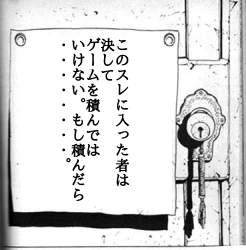 このスレに入った者は
決して
ゲームを積んでは
いけない。もし積んだら
・・・・・・・。